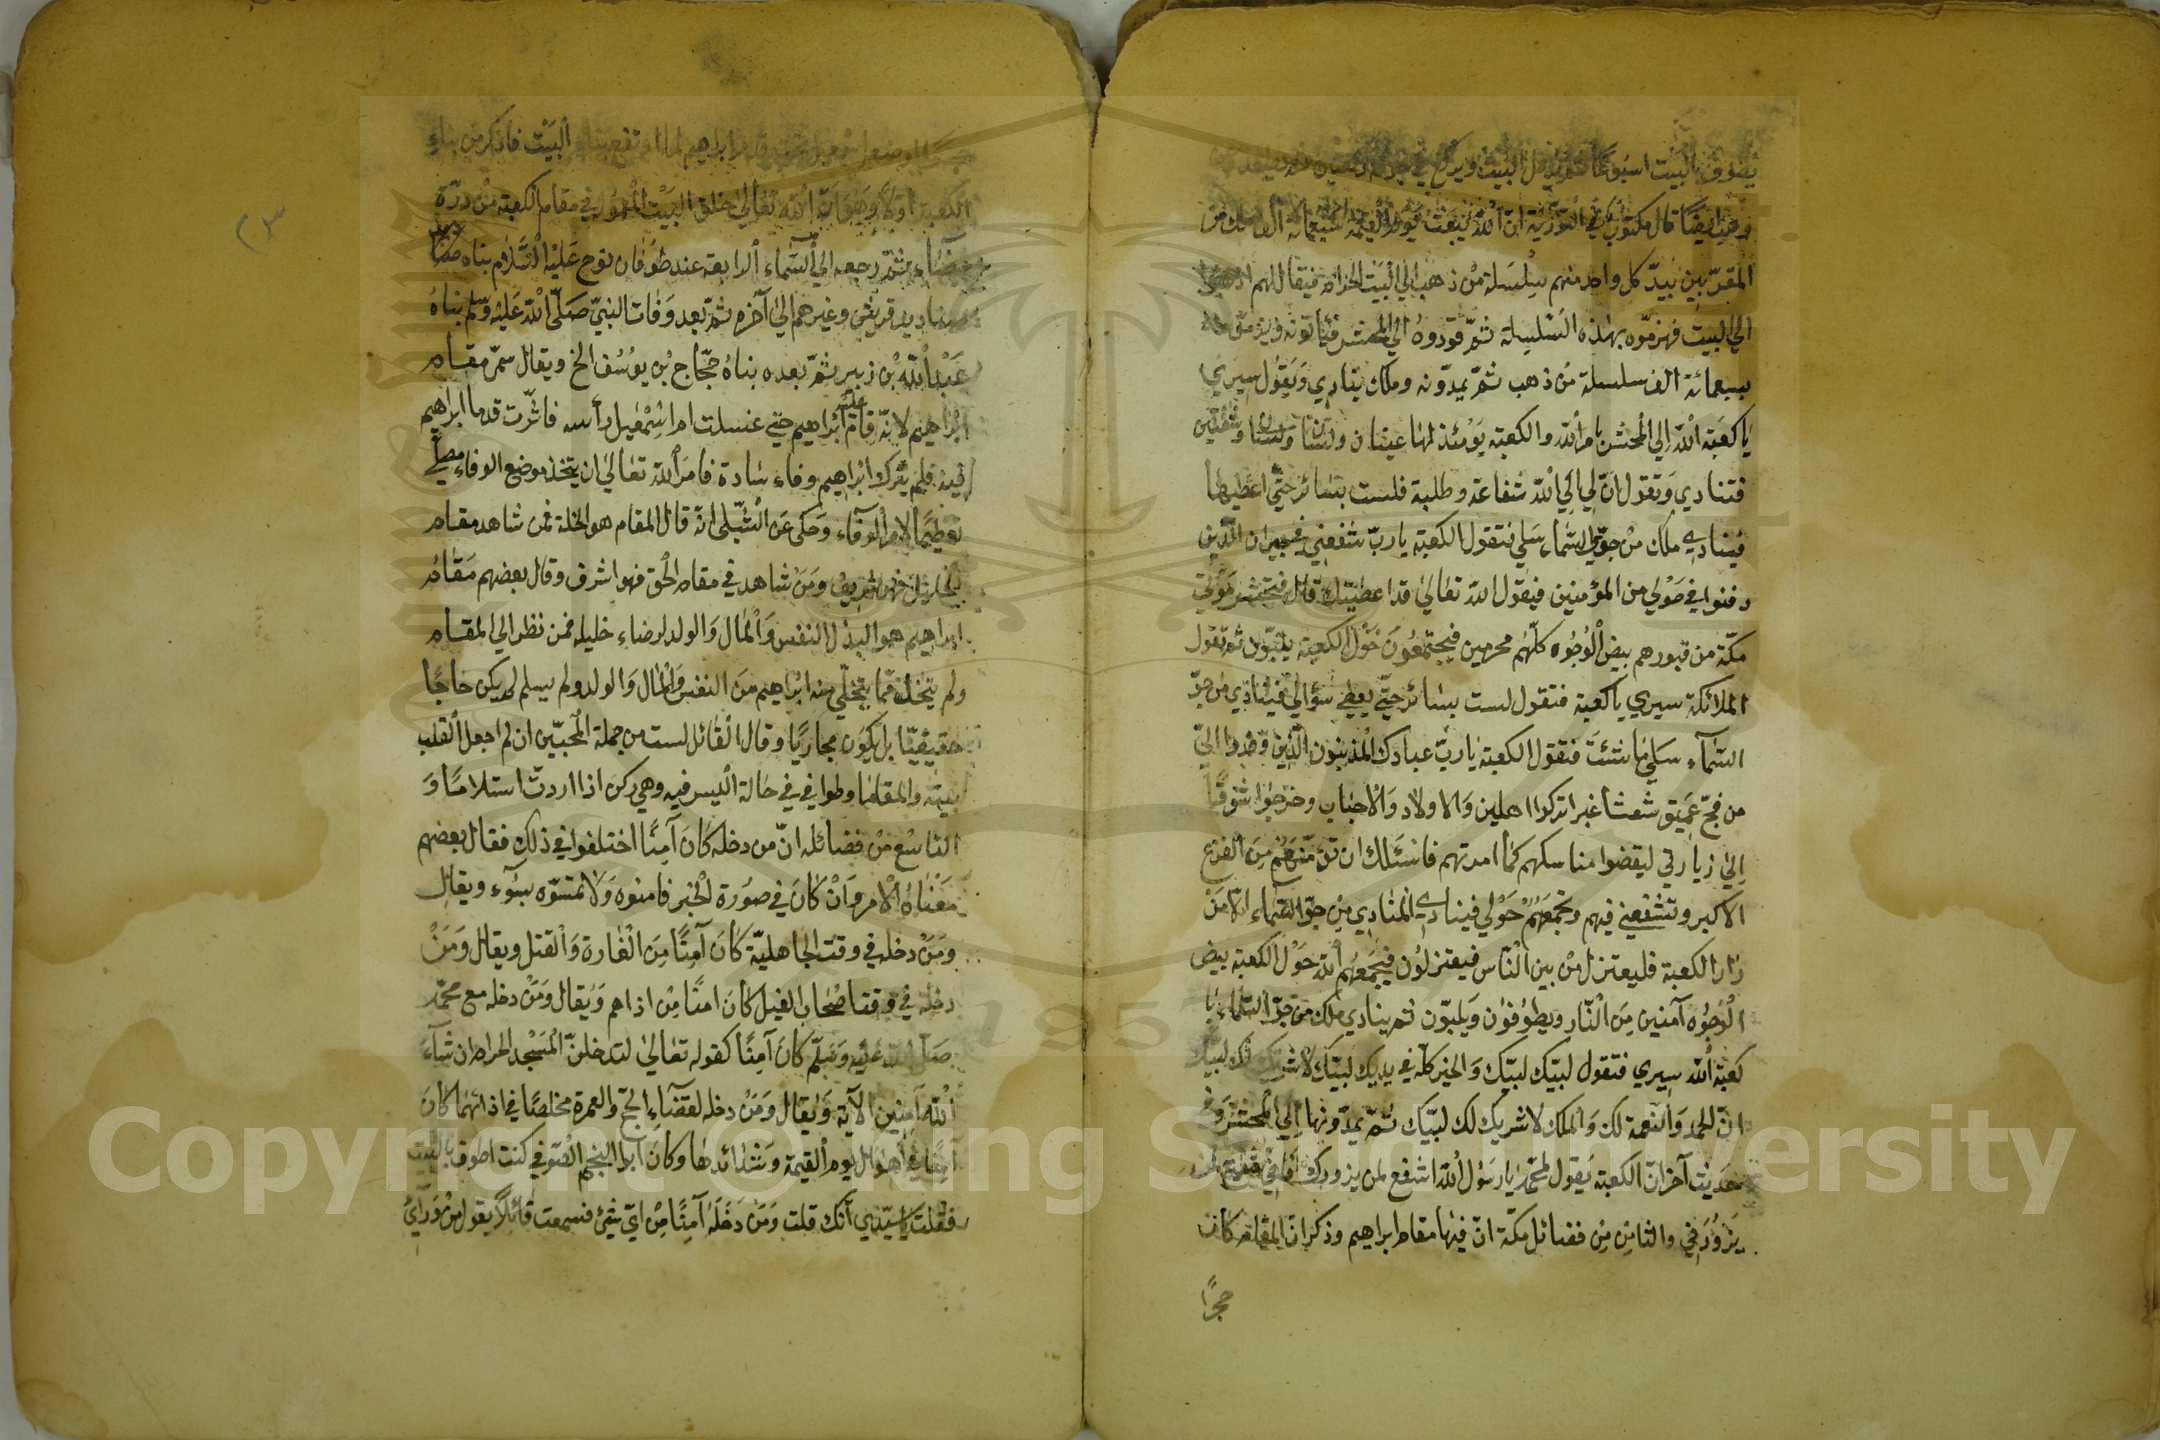 يطوف بالبيت اسبوعًا ثم يدخل البيت ويركع
وفيها ايضًا قال مكتوب في التورية ان الله يبعث يوم القيمة سبعمائة الف ملك من
المقرّبين بيد كل واحد منهم سلسلة من ذهب الي البيت الحرام فيقال لهم اذهبوا
الي البيت فهزموه بهذه السلسلة ثمّ قودوهُ الي المحشر فيأتونه
بسبعمائة الف سلسلة من ذهب ثمّ يمدّونه وملك ينادي وَيَقول سيري
يا كعبة الله اِلي المحشر بامر الله والكعبة يَوْمئذ لها عينان ولسان وشفتين
فتنادي وَتقول انّ لي الي الله شفاعة وطلبة فلست بسائر حتّي اعطيها
فينادي ملك من جوّ السّماء سَلي فتقول الكعبة يا ربّ شفعني في جيران الذين
دفنوا في حَوْلي من المؤمنين فيقول الله تعالي قد اعطيتك قال فيحشر مَوْتي
مكّة من قبورهم بيض الوُجُوه كلّهم محرمين فيجتمعُونَ حَوْل الكعبة يلبّون ثم تقول
الملائكة سيري يا كعبة فتقول لست بسائر حتّي يعطي سؤالي فينادي من جوّ
السّمآء سَلي ما شئتَ فتقول الكعبة يا ربّ عبادك المذنبون الّذين وفدوا اليّ
من فجّ عميق شعشا غبرا تركوا اهلين وَالاولاد وَالاحباب وخرجوا شوقًا
اِلي زيارتي ليقضوا مناسكهم كما امدتهم فانسئلك ان تؤمّنهُم مِنَ الفزع
الاكبر وتشفعني فيهم وتجمعَهُمْ حَوْلي فينادي المنادي مِن جوّ السّماء الا مَنْ
زار الكعبة فليعتزل من بين النّاس فيعتزلون فيجمعهُم الله حَوْل الكعبة بيض
الوُجُوه آمنين مِنَ النّار ويطوُفوُن وَيلبّون ثم ينادي ملك من جوّ السّماء يا
كعبة الله سيري فتقول لبيّك لبيّك وَالخير كلّه في يديك لبيّك لا شريك لك لبيّك
انّ الحمد وَالنعمة لك وَالملك لا شريك لك لبيّك ثمّ يمدّونها اِلي المحشر وَفي
حديث آخر انّ الكعبة يَقول لمحمّد يا رَسُول الله اشفع لمن يزورك فانّي شفيع لمن
يَزُورَني والثامِن مِن فضائل مكّة انّ فيها مقام ابراهيم وذكر انّ المقام كان
حجرًا
ابراهيم لما ارتفع بناء البَيْت فاذكر من بناء
الكعبة اوّلاً وَهُوَ انّ الله تعالي خلق البَيْت المعمُور في مقام الكعبة مِنْ درّة
بيضآء ثمّ رجعه الي السّماء الرابعة عند طوُفان نوح عَليْه السّلام بناه
صناديد قريش وغيرهم اليٰ آخره ثمّ بعد وَفات النبيّ صَلّي الله عَليْه وسلم بناهُ
عَبْد الله بْن زبير ثمّ بعده بناهُ حجّاج بْن يوسُف الخ ويقال سمّي مقام
ابْراهيم لانّه قام عليه ابْراهيم حتي غسلت ام اِسْمعيل رأسه فاثّرت قدما ابراهيم
فيه فلم يترك ابراهيم وفاء سادة فامَر الله تعالي ان يتخذ موضع الوفاء مصلّي
تعظيمًا لامر الوفآء وَحكي عَن الشبلي انّه قال المقام هو الخلة فمن شاهد مقام
الخليل فهو شريف وَمَن شاهد في مقام الحق فهو اشرف وقال بعضهم مَقامُ
ابراهيم هو البذل النفس وَالمال وَالولد لرضاء خليله فمن نظر الي المقام
ولم يتخلّ ممّا يتخلّي منه ابراهيم منَ النفس وَالمال وَالولد ولم يسلم لم يكن حاجًا
حقيقيّا بل يكوُن مجازيًا وقال القائل لست من جملة المحبّين ان لم اجعل القلب
بيته والمقاما وطوافي في حالة اليسر فيه وهي ركن اذا اردتّ استلامًا وَ
التاسْع مِنْ فضائله انّ من دخله كانَ آمِنًا اختلفوا في ذلك فقال بعضهم
مَعْناهُ الْامر وَانْ كانَ في صُورة الخبر فامنوه وَلا تمسّوه بسُوء ويقال
وَمَنْ دخله في وقت الجاهليّة كانَ آمِنًا مِنَ الغارة وَالقتل ويقال وَمَنْ
دخله في وقت اصحاب الفيل كانَ امنًا مِنْ اذاهم وَيُقال وَمَنْ دخله مع محمّد
صلّي الله عَليْه وَسَلّم كانَ آمِنًا كقوله تعاليٰ لتدخلنّ المَسْجد الحرام ان شآءَ
الله آمِنين الآية وَيُقال وَمَنْ دخله لقضآءِ الحجّ والعمرة مخلصًا في ادائهما كانَ
آمِنًا من اَهْوال يوم القيمة وَشدائدها وكانَ ابو النجم الصُّوفي كنت اطوف بالبيت
فقلت يا سيّدي انّك قلت وَمَنْ دَخَلَهُ آمِنًا مِنْ ايّ شئ فسمعت قائلاً يقول من وَرآئ